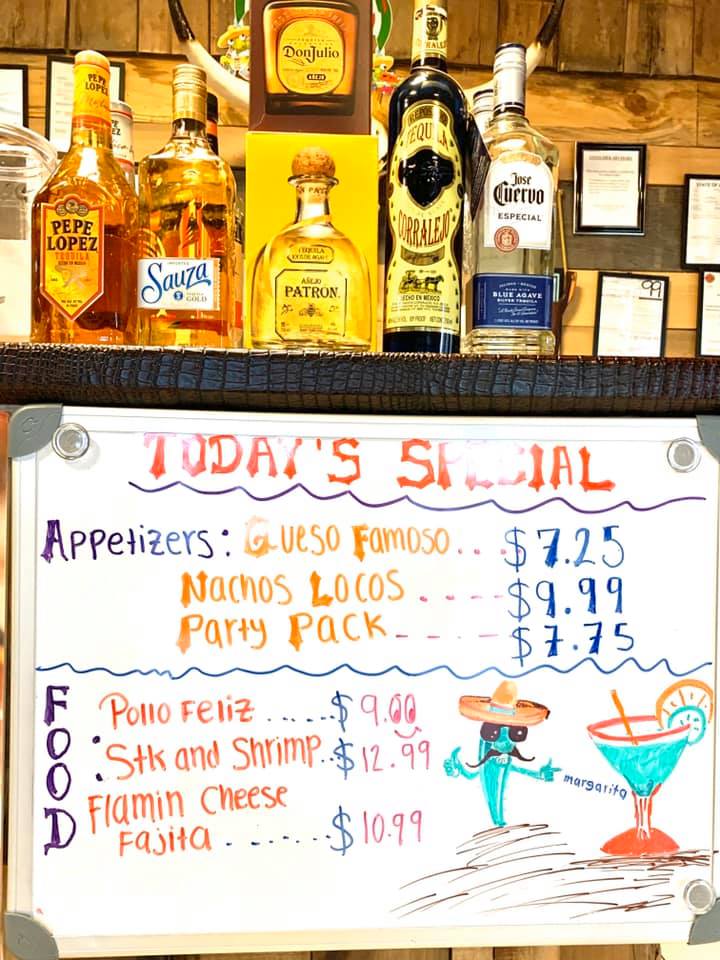 DonJulio
AÑEJO
PEPE
LOPEZ
PEPE
LOPEZ
TEQUILA
Sauza
GOLD
TEQUILA
100% DE AGAVE
AÑEJO
PATRON.
TEQUILA
CORRALEJO
HECHO EN MEXICO
Jose
Cuervo
ESPECIAL
BLUE AGAVE
SILVER TEQUILA
99
TODAY'S SPECIAL
Appetizers: Queso Famoso... $7.25
Nachos Locos ..... $9.99
Party Pack..... $7.75
FOOD:
Pollo Feliz ......$ 9.00
Stk and Shrimp..$ 12.99
Flamin Cheese
Fajita ........$ 10.99
margarita